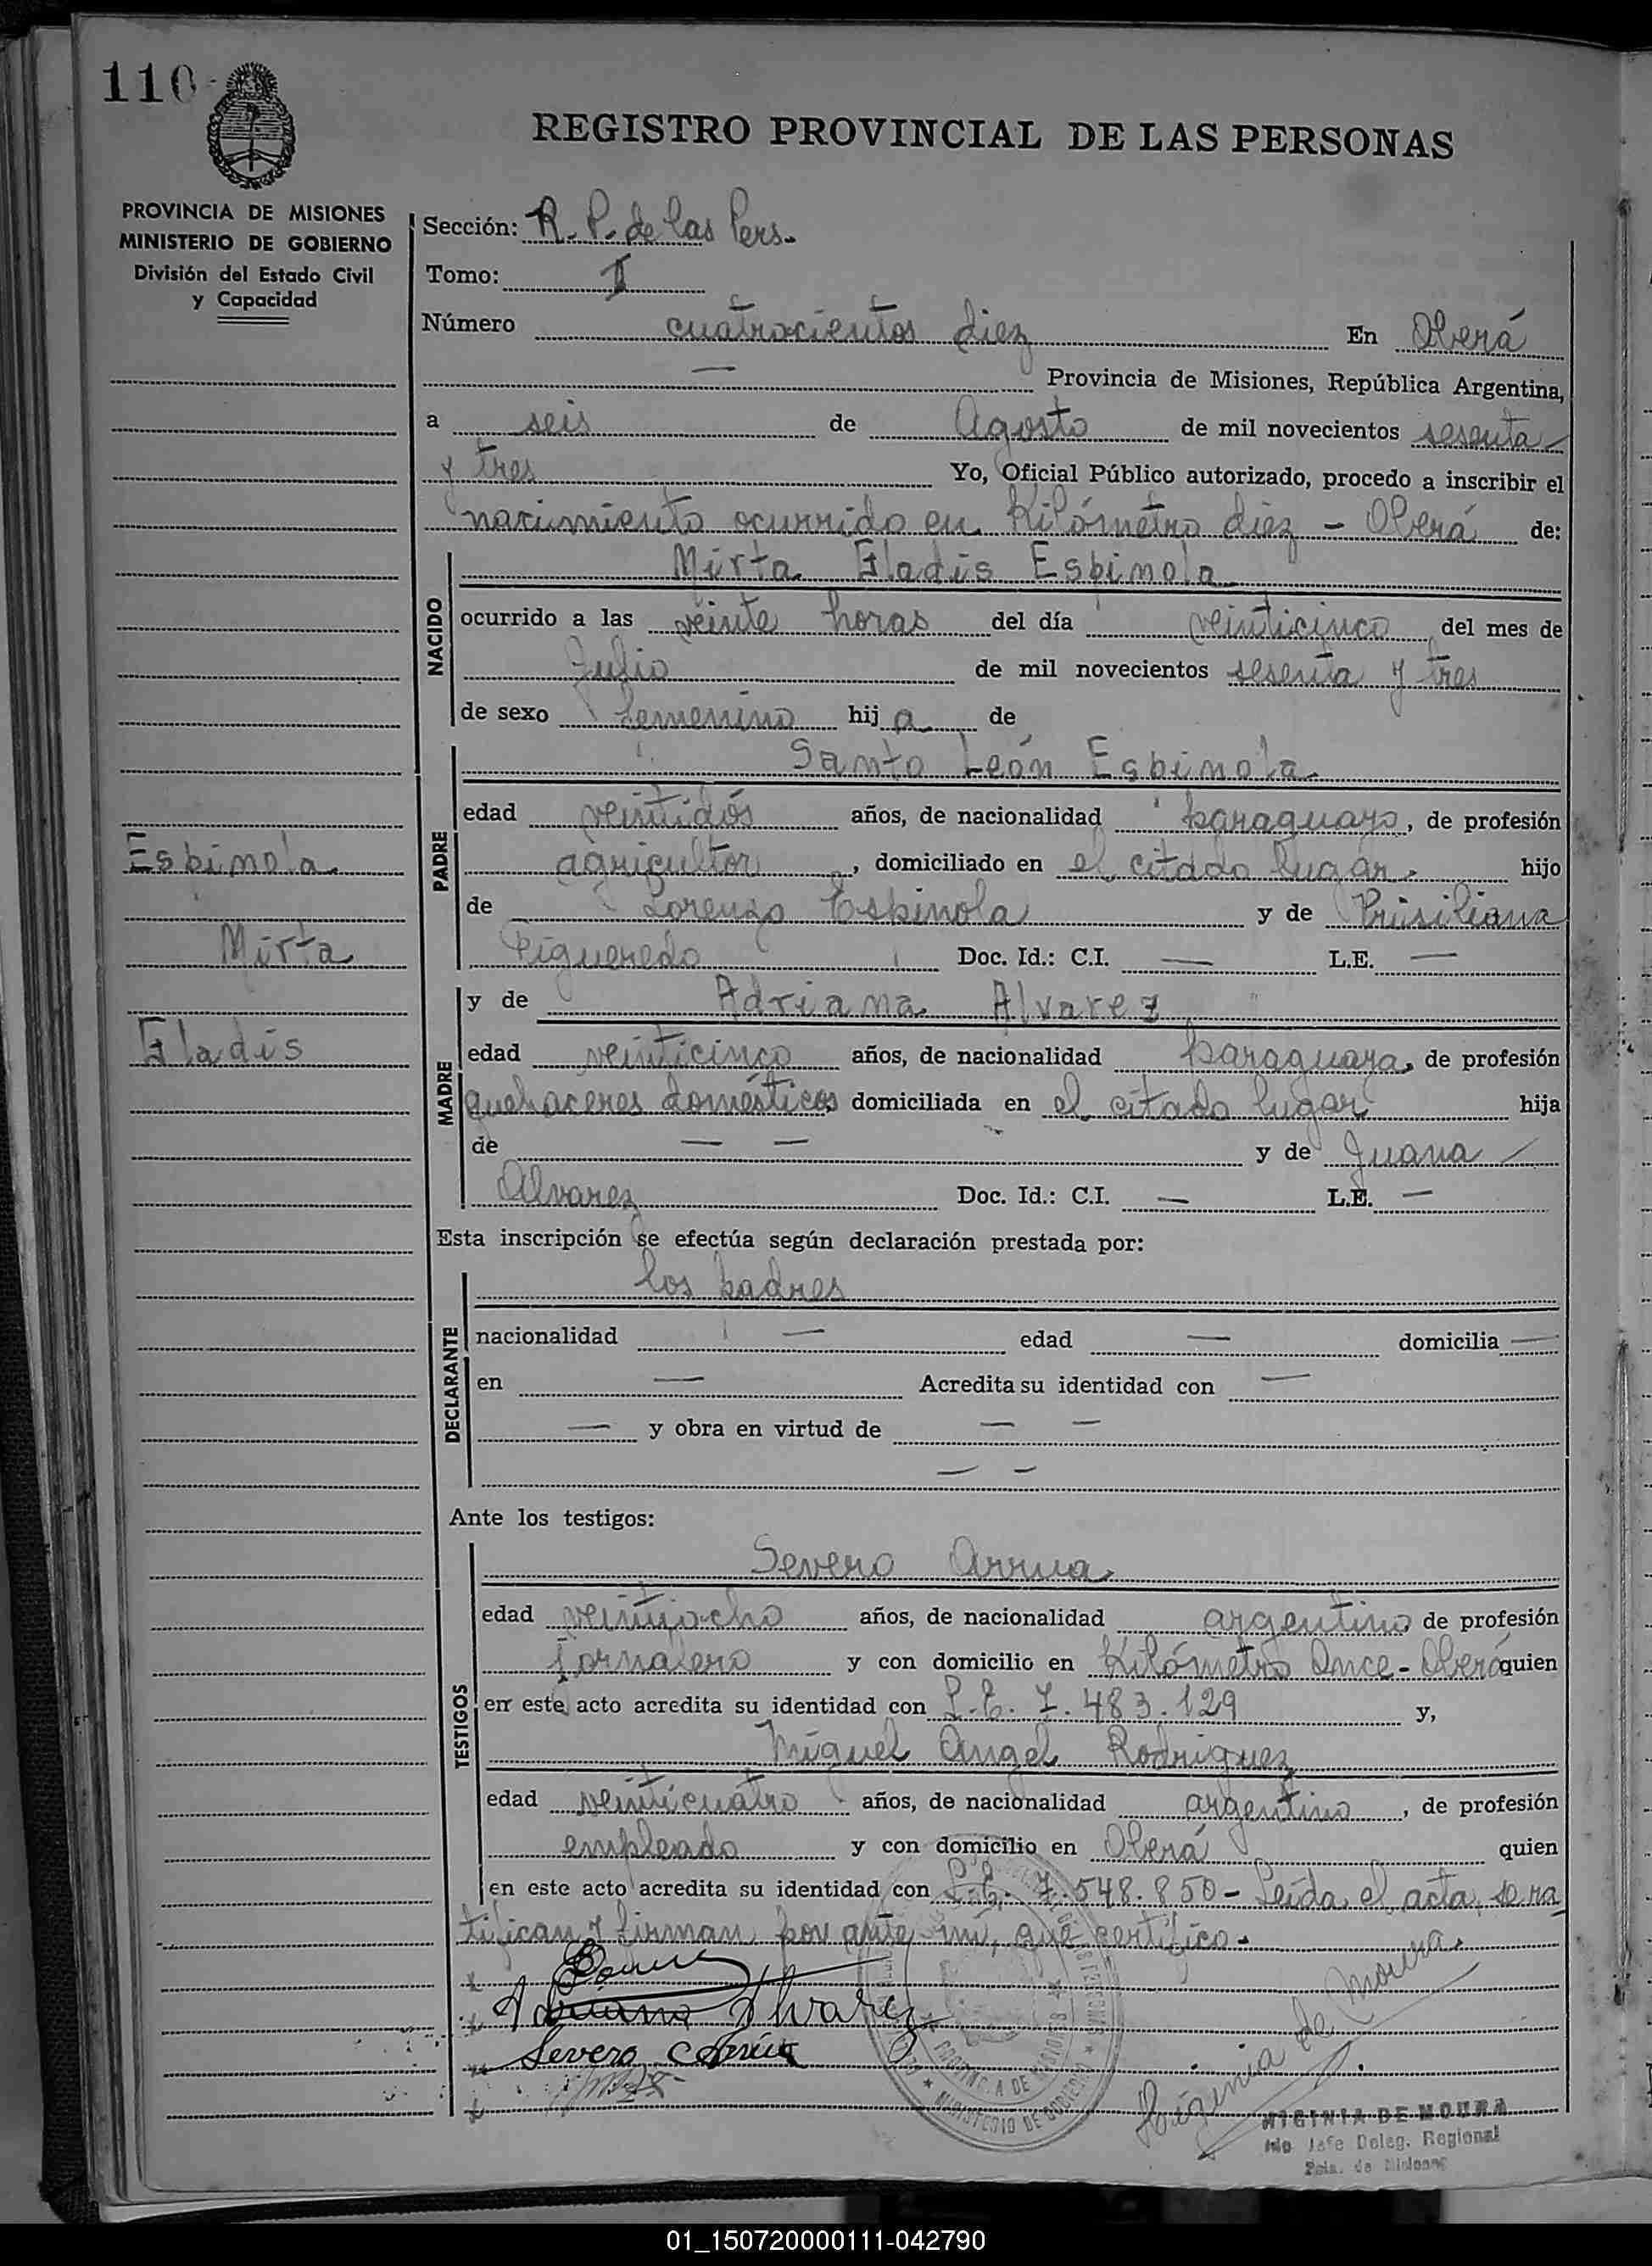 110
REGISTRO PROVINCIAL DE LAS PERSONAS
PROVINCIA DE MISIONES
MINISTERIO DE GOBIERNO
División del Estado Civil
y Capacidad
Sección: R. P. de las Pers.
Tomo: II
Número cuatrocientos diez En Oberá
— Provincia de Misiones, República Argentina,
a seis de Agosto de mil novecientos sesenta
y tres Yo, Oficial Público autorizado, procedo a inscribir el
nacimiento ocurrido en Kilómetro diez - Oberá de:
NACIDO
Mirta Gladis Espinola
ocurrido a las veinte horas del día veinticinco del mes de
Julio de mil novecientos sesenta y tres
de sexo femenino hij a de
PADRE
Santo León Espinola
edad veintidós años, de nacionalidad paraguayo, de profesión
agricultor, domiciliado en el citado lugar. hijo
de Lorenzo Espinola y de Prisiliana
Figueredo Doc. Id.: C.I. — L.E. —
Espinola
Mirta
Gladis
MADRE
y de Adriana Alvarez
edad veinticinco años, de nacionalidad paraguaya, de profesión
quehaceres domésticos domiciliada en el citado lugar hija
de — — y de Juana —
Alvarez Doc. Id.: C.I. — L.E. —
Esta inscripción se efectúa según declaración prestada por:
DECLARANTE
los padres
nacionalidad — edad — domicilia —
en — Acredita su identidad con —
— y obra en virtud de — —
— —
Ante los testigos:
TESTIGOS
Severo Arrua
edad veintiocho años, de nacionalidad argentino de profesión
jornalero y con domicilio en Kilómetro Once - Oberá quien
en este acto acredita su identidad con L.E. 7.483.129 y,
Miguel Angel Rodriguez
edad veinticuatro años, de nacionalidad argentino, de profesión
empleado y con domicilio en Oberá quien
en este acto acredita su identidad con L.E. 7.548.850 - Leída el acta, se ra
tifican y firman por ante mí, que certifico.
Adriana Alvarez
Severo Arrúa
Higinia de Moura
PROVINCIA DE MISIONES
MINISTERIO DE GOBIERNO
HIGINIA DE MOURA
Jefe Deleg. Regional
Pcia. de Misiones
01_150720000111-042790